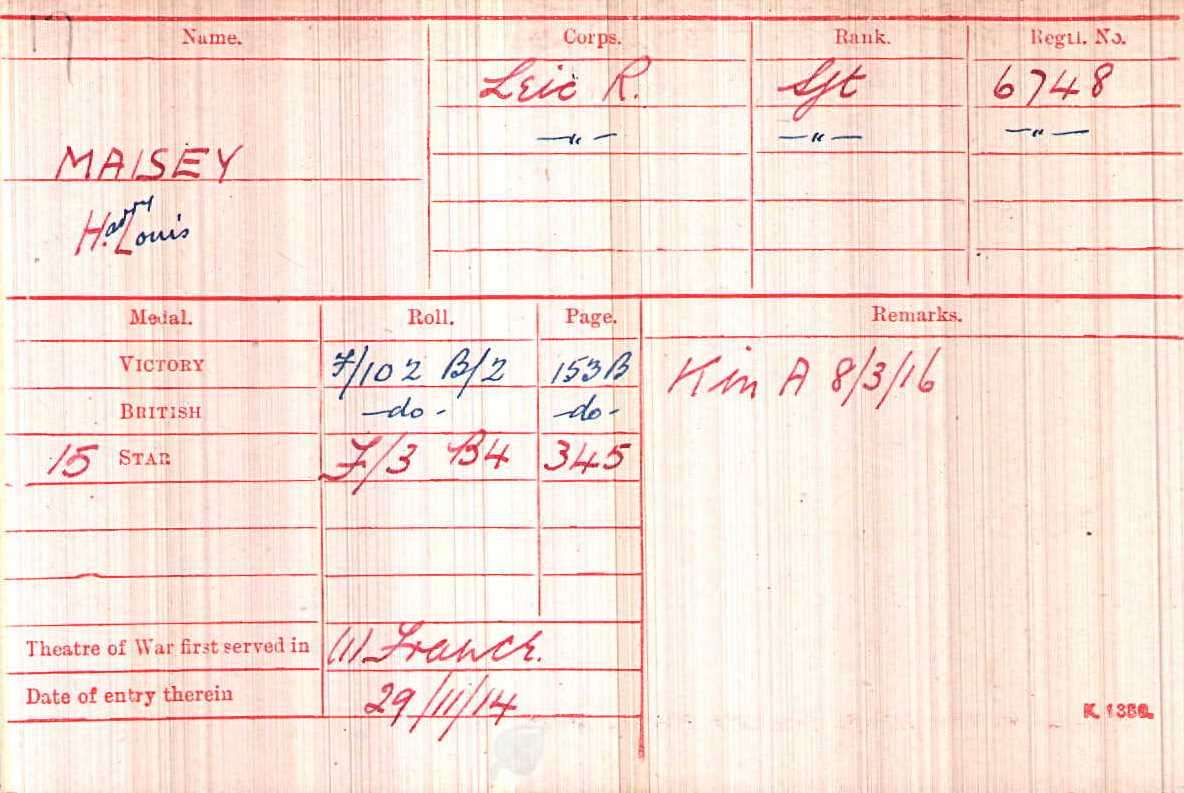 Name. Corps. Rank. Regtl. No.
Leic R. Sjt 6748
—"— —"— —"—
MAISEY
H.arry Louis
Medal. Roll. Page. Remarks.
VICTORY F/102 B/2 153B K in A 8/3/16
BRITISH —do- —do-
15 STAR F/3 B4 345
Theatre of War first served in (1) France.
Date of entry therein 29/11/14
K. 1380.